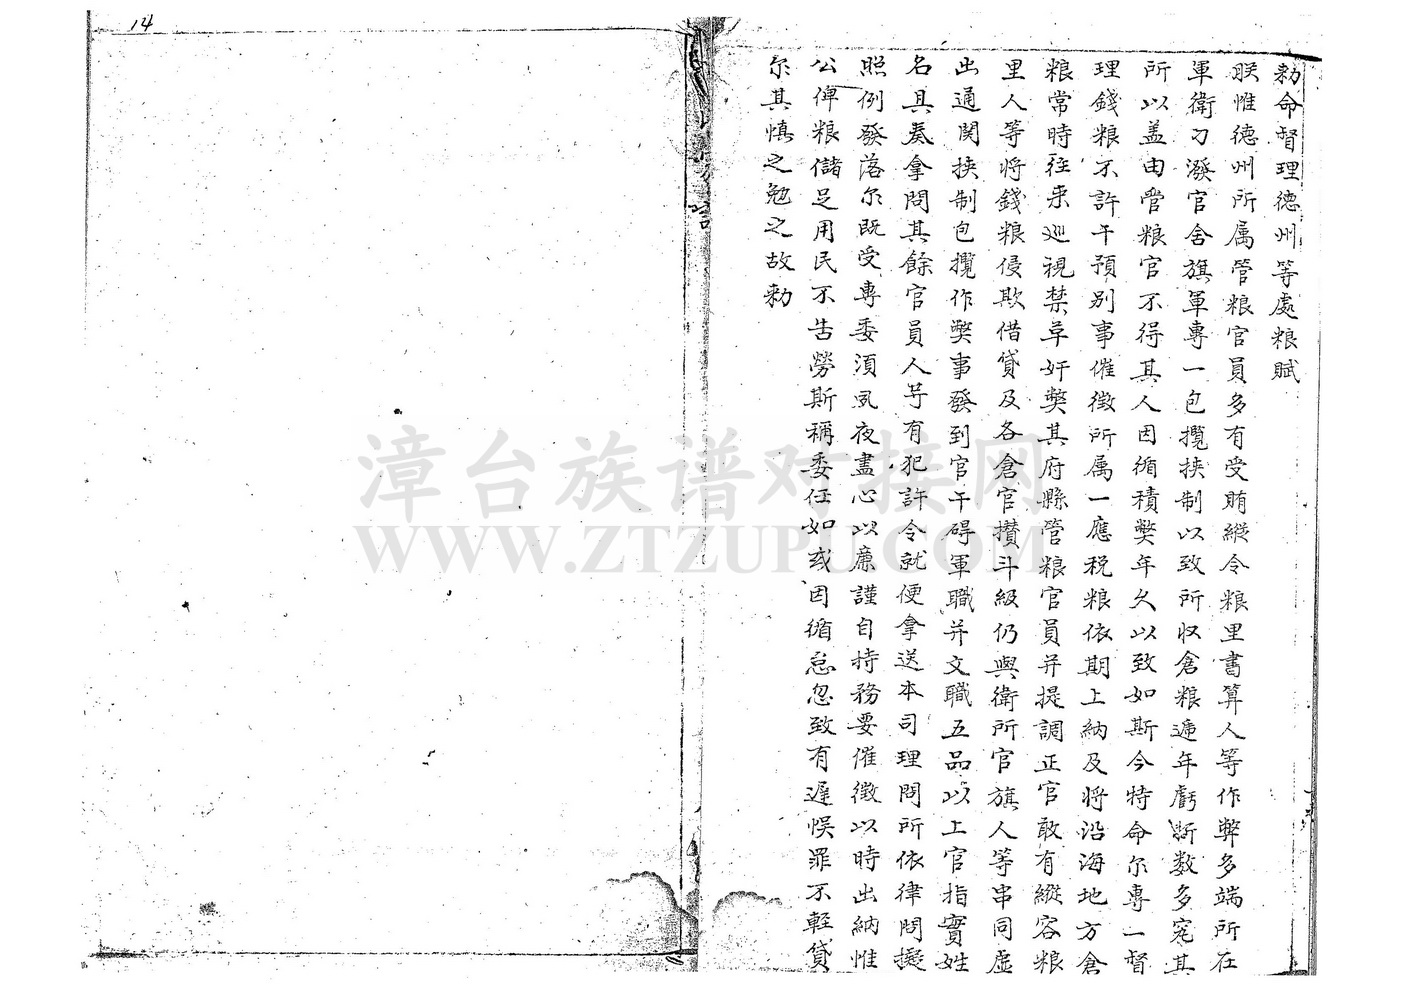 勅命督理德州等處粮賦
朕惟德州所属管粮官員多有受賄縱令粮里書算人等作弊多端所在
軍衛刁潑官舍旗軍專一包攬挟制以致所收倉粮遞年虧折数多究其
所以盖由管粮官不得其人因循積獘年久以致如斯今特命尔專一督
理錢粮不許干預别事催徵所属一應税粮依期上納及将沿海地方倉
粮常時往来巡視禁革奸獘其府縣管粮官員并提調正官敢有縱容粮
里人等将錢粮侵欺借貸及各倉官攢斗級仍與衛所官旗人等串同虚
出通関挟制包攬作獘事發到官干碍軍職并文職五品以上官指實姓
名具奏拿問其餘官員人等有犯許令就便拿送本司理問所依律問擬
照例發落尔既受專委須夙夜盡心以廉謹自持務要催徵以時出納惟
公俾粮儲足用民不告勞斯稱委任如或因循怠忽致有遲悞罪不輕貸
尔其慎之勉之故勅
14
漳台族谱对接网
WWW.ZTZUPU.COM